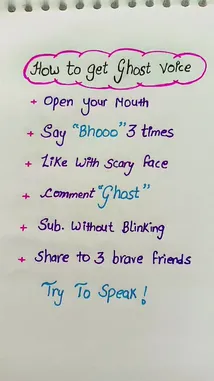 How to get Ghost Voice
+ Open your Mouth
+ Say "Bhooo" 3 times
+ Like With Scary Face
+ Comment "Ghost"
+ Sub. Without Blinking
+ Share to 3 brave friends
Try To Speak!